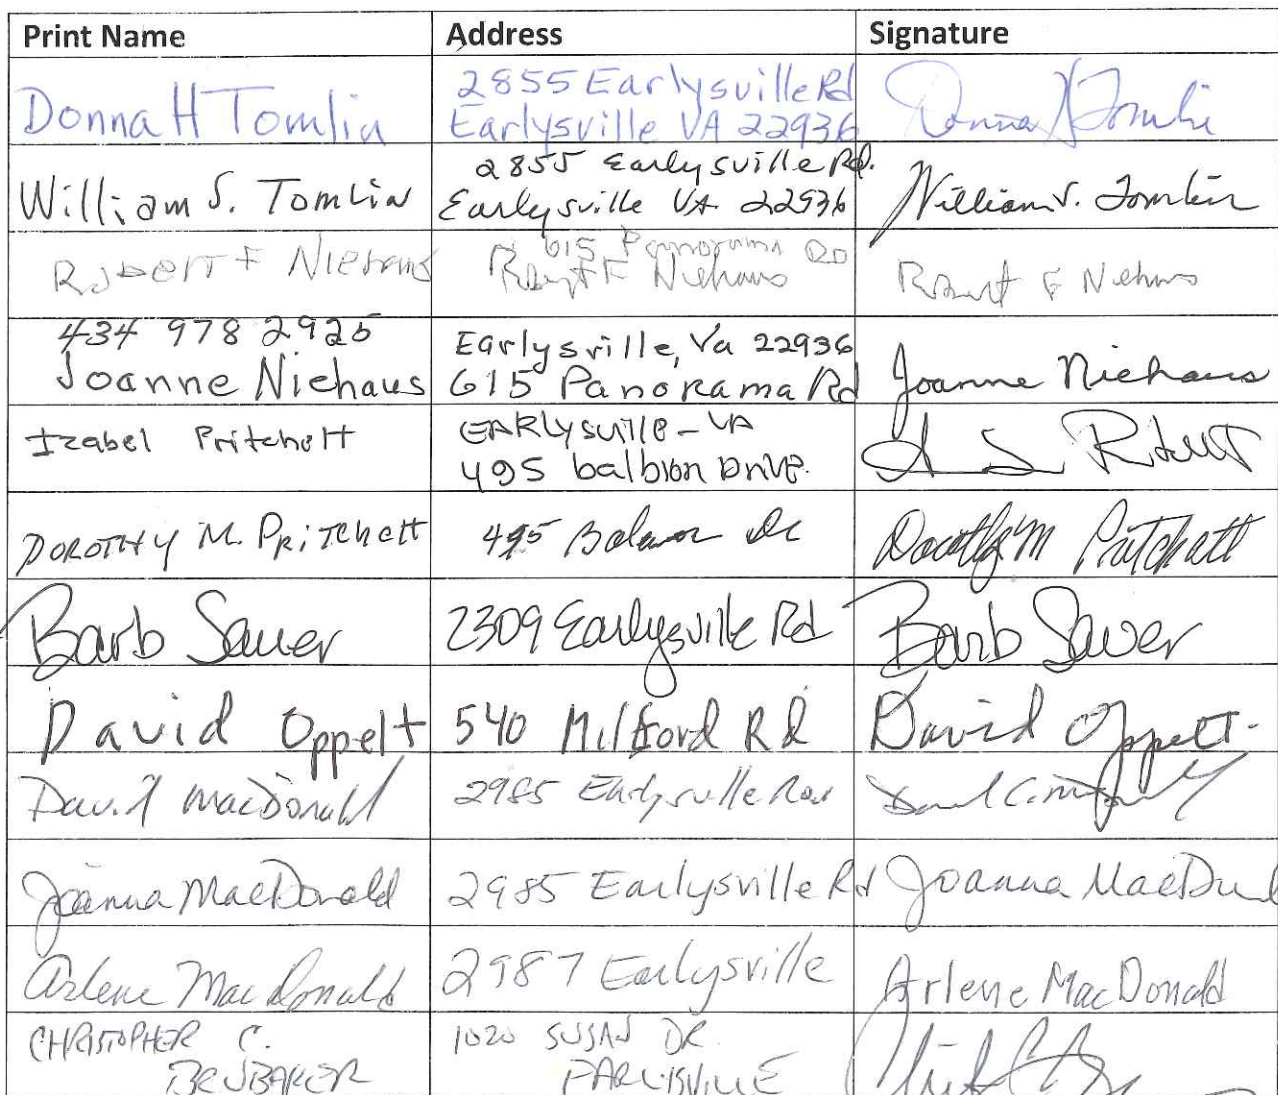 Print Name Address Signature
Donna H Tomlin 2855 Earlysville Rd Earlysville VA 22936 Donna H Tomlin
William S. Tomlin 2855 Earlysville Rd. Earlysville VA 22936 William S. Tomlin
Robert F Niehaus 615 Panorama RD Robert F Niehaus Robert F Niehaus
434 978 2925
Joanne Niehaus Earlysville, Va 22936 615 Panorama Rd Joanne Niehaus
Izabel Pritchett EARlysville - VA 495 balbion Drive
DOROTHY M. PRITCHETT 495 Dr Dorothy M Pritchett
Barb Sauer 2309 Earlysville Rd Barb Sauer
David Oppelt 540 Milford Rd David Oppelt
David MacDonald 2985 Earlysville Road
Joanna MacDonald 2985 Earlysville Rd Joanna MacDonald
Arlene MacDonald 2987 Earlysville Arlene MacDonald
CHRISTOPHER C. BRUBAKER 1020 SUSAN DR EARLYSVILLE